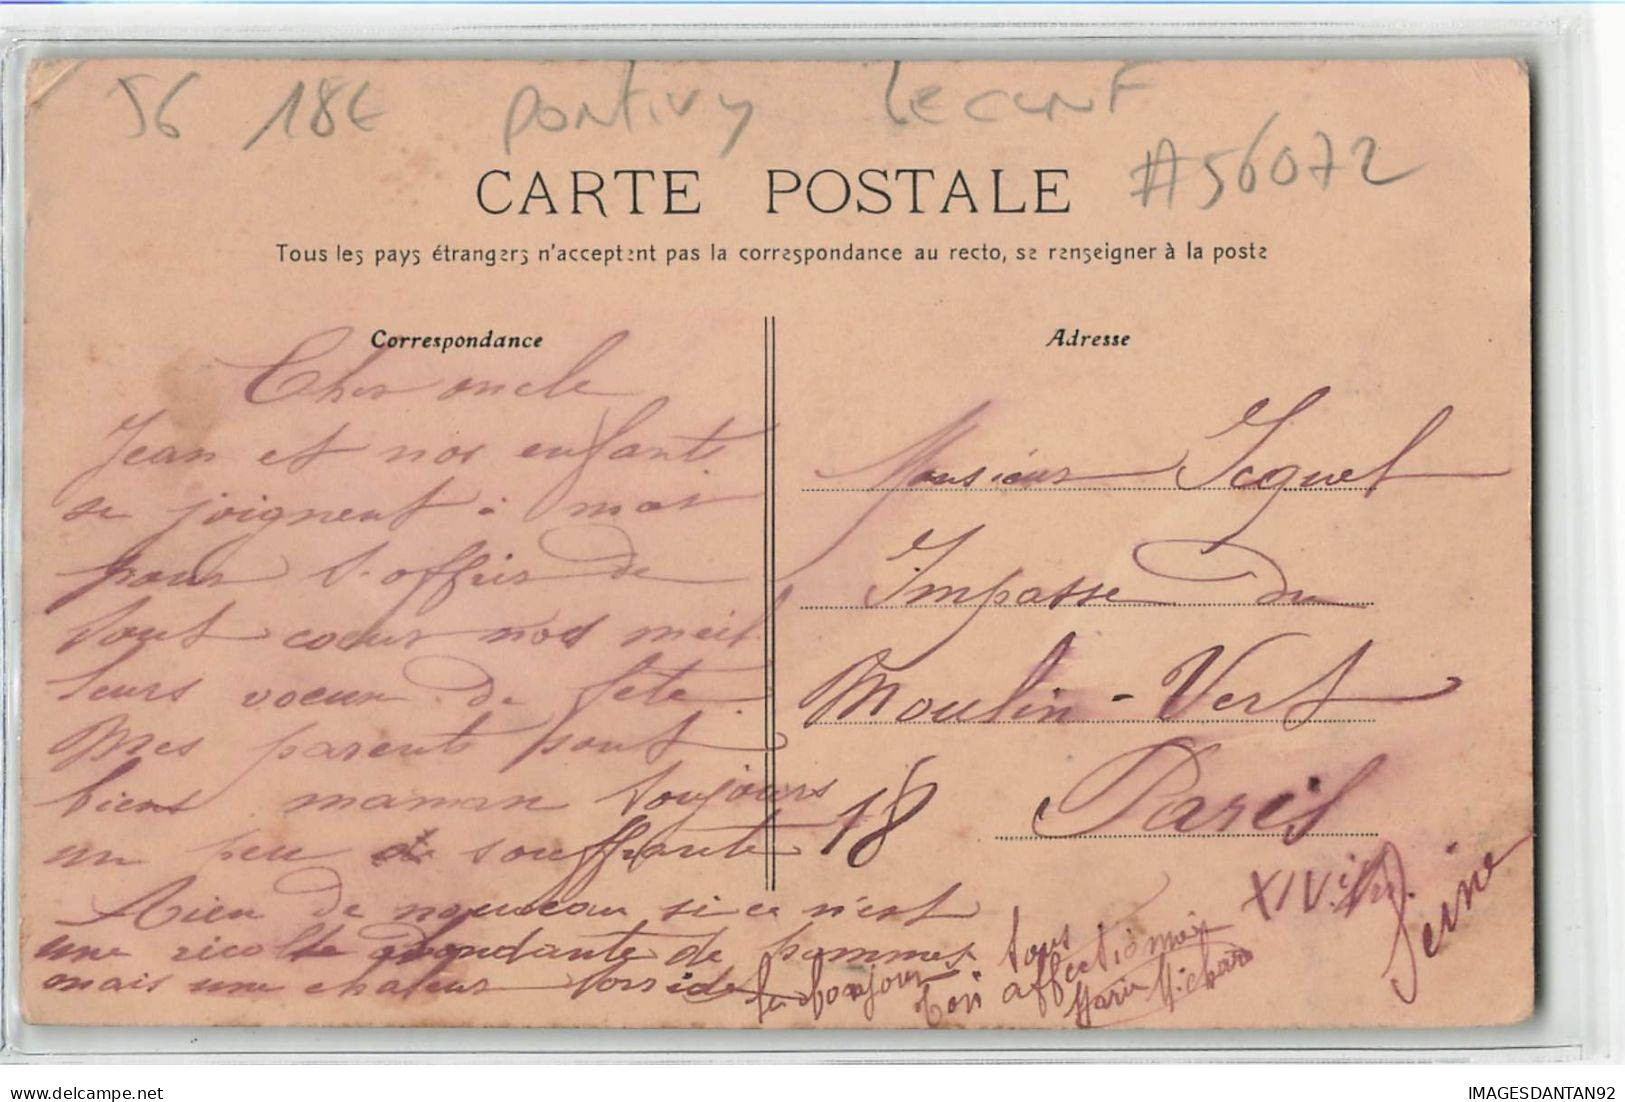 56 18€ Pontivy
#56072
CARTE POSTALE
Tous les pays étrangers n'acceptent pas la correspondance au recto, se renseigner à la poste
Correspondance
Cher oncle
Jean et nos enfants
se joignent à moi
pour t'offrir de
tout coeur nos meil
leurs voeux de fête.
Mes parents sont
biens maman toujours
un peu souffrante
Rien de nouveau si ce n'est
une récolte abondante de pommes
mais une chaleur torride
bonjour à tous
Ton affectionné
Marie Richard
Adresse
Monsieur Jcquel
Impasse du
Moulin-Vert
18 Paris
XIV
Seine
delcampe.net
IMAGESDANTAN92